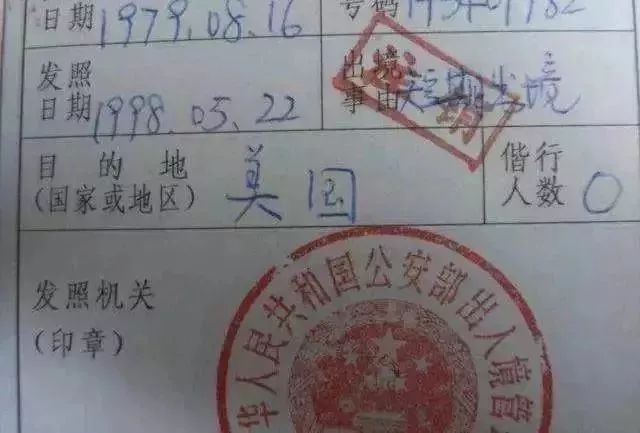 日期 1979.08.16
号码
发照日期 1998.05.22
出境事由 短期出境
目的地(国家或地区) 美国
偕行人数 0
发照机关
(印章)
华人民共和国公安部出入境管